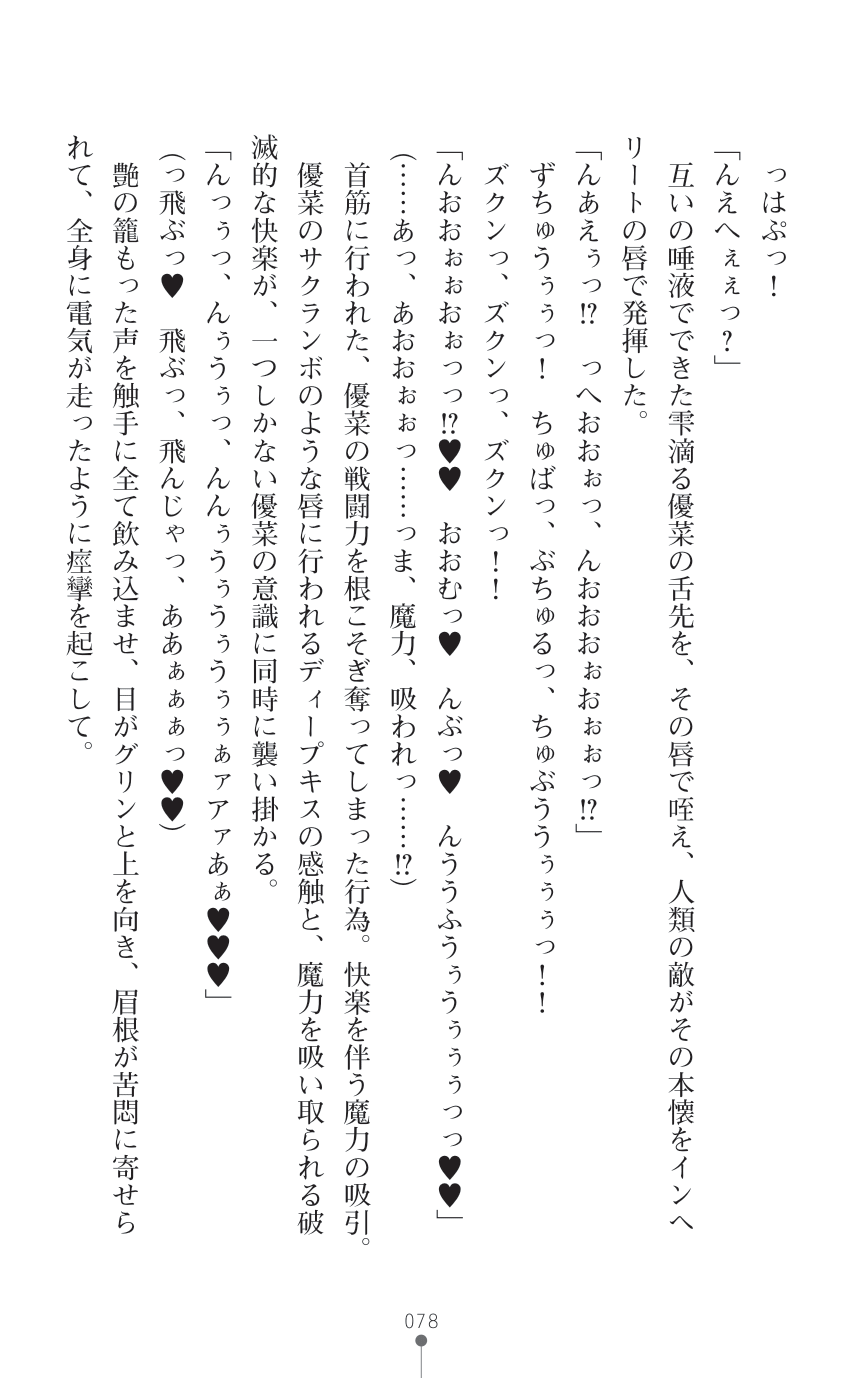 っはぷっ！
「んえへぇぇっ？」
互いの唾液でできた雫滴る優菜の舌先を、その唇で咥え、人類の敵がその本懐をインヘ
リートの唇で発揮した。
「んあえぅっ!?　っへおおぉっ、んおおおぉおぉぉっ!?」
ずちゅうぅぅっ！　ちゅばっ、ぶちゅるっ、ちゅぶううぅぅぅっ！！
ズクンっ、ズクンっ、ズクンっ！！
「んおおぉぉおぉっっ!?♥♥　おおむっ♥　んぶっ♥　んううふうぅうぅぅぅっっ♥♥」
（……あっ、あおおぉぉっ……っま、魔力、吸われっ……!?）
首筋に行われた、優菜の戦闘力を根こそぎ奪ってしまった行為。快楽を伴う魔力の吸引。
優菜のサクランボのような唇に行われるディープキスの感触と、魔力を吸い取られる破
滅的な快楽が、一つしかない優菜の意識に同時に襲い掛かる。
「んっぅっ、んぅうぅっ、んんぅうぅうぅうぅぅぁァアァあぁ♥♥♥」
（っ飛ぶっ♥　飛ぶっ、飛んじゃっ、ああぁぁぁっ♥♥）
艶の籠もった声を触手に全て飲み込ませ、目がグリンと上を向き、眉根が苦悶に寄せら
れて、全身に電気が走ったように痙攣を起こして。
078